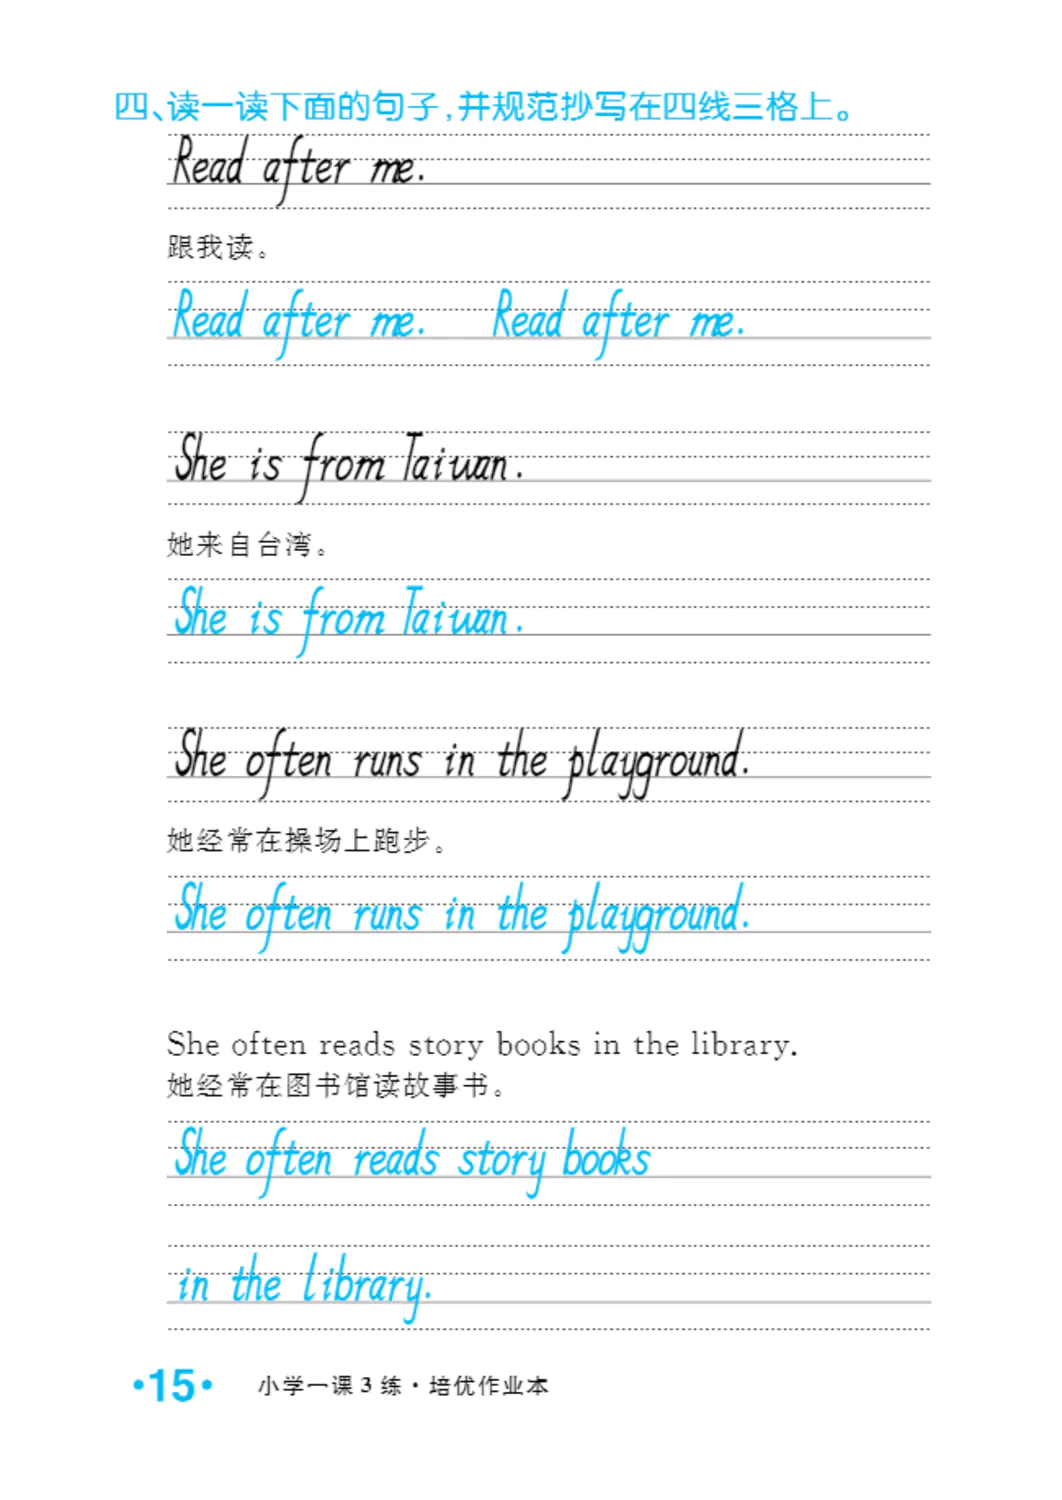 四、读一读下面的句子,并规范抄写在四线三格上。
Read after me.
跟我读。
Read after me. Read after me.
She is from Taiwan.
她来自台湾。
She is from Taiwan.
She often runs in the playground.
她经常在操场上跑步。
She often runs in the playground.
She often reads story books in the library.
她经常在图书馆读故事书。
She often reads story books
in the library.
•15• 小学一课 3 练·培优作业本